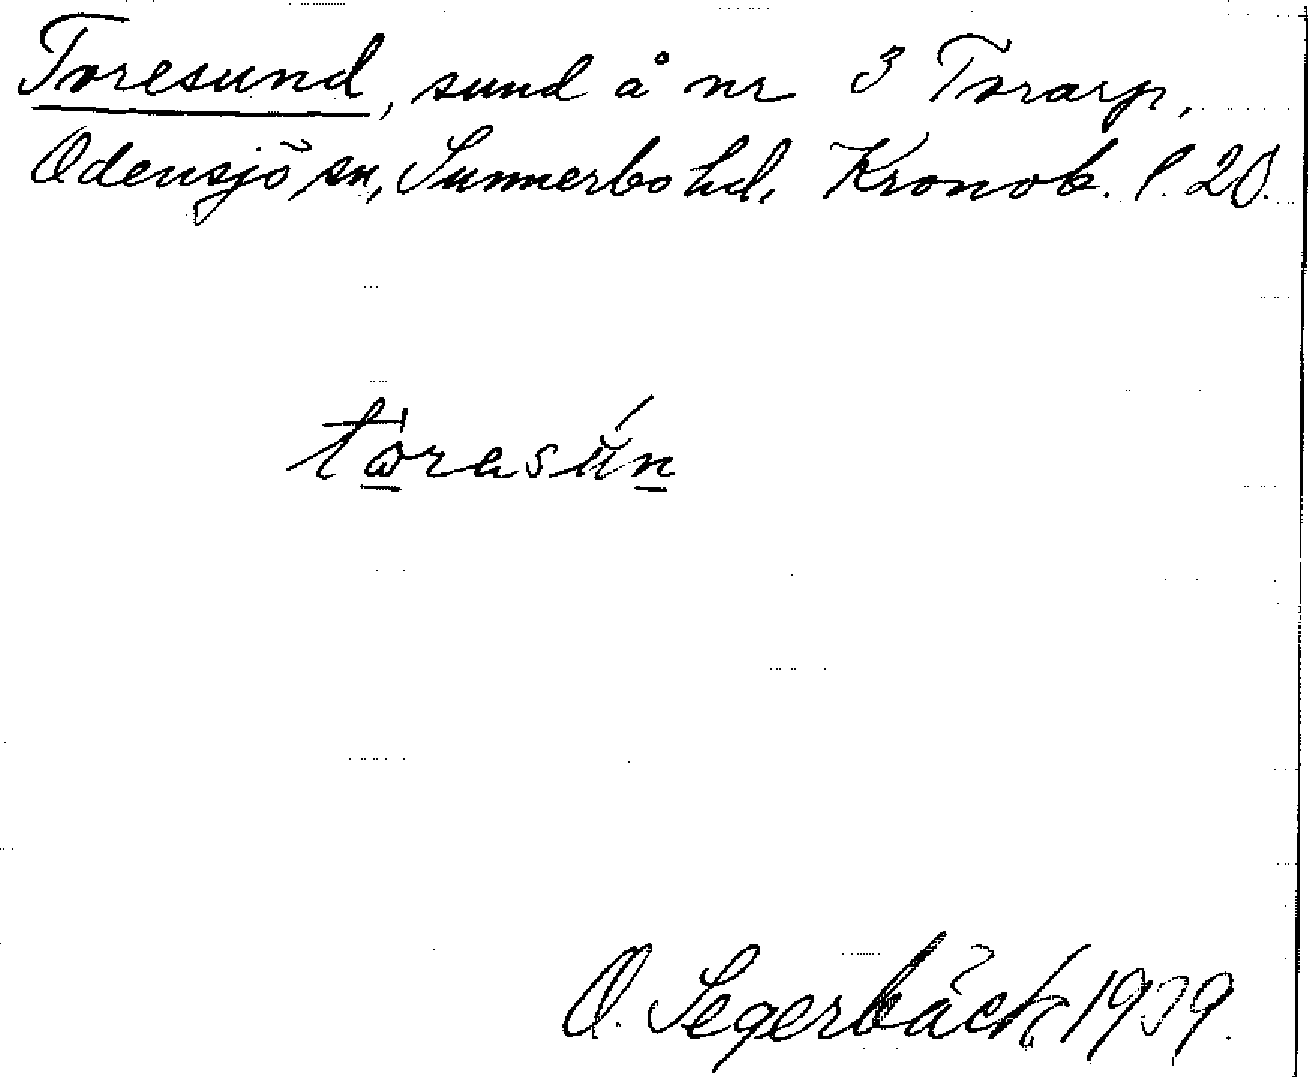 Toresund, sund å nr 3 Torarp,
Odensjö sn, Sunnerbo hd, Kronob. l. 20.
O. Segerbäck 1939.